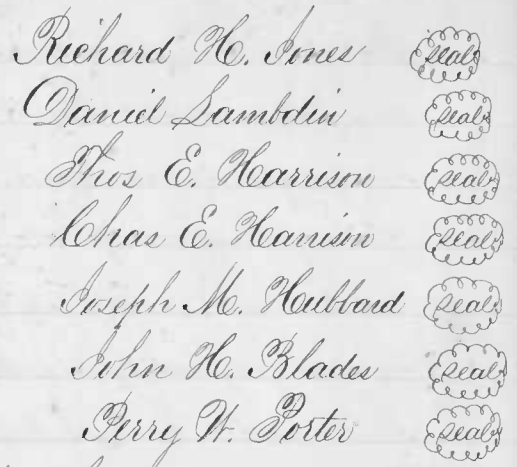 Richard H. Jones seal
Daniel Lambdin seal
Thos E. Harrison seal
Chas E. Harrison seal
Joseph M. Hubbard seal
John H. Blades seal
Perry W. Porter seal